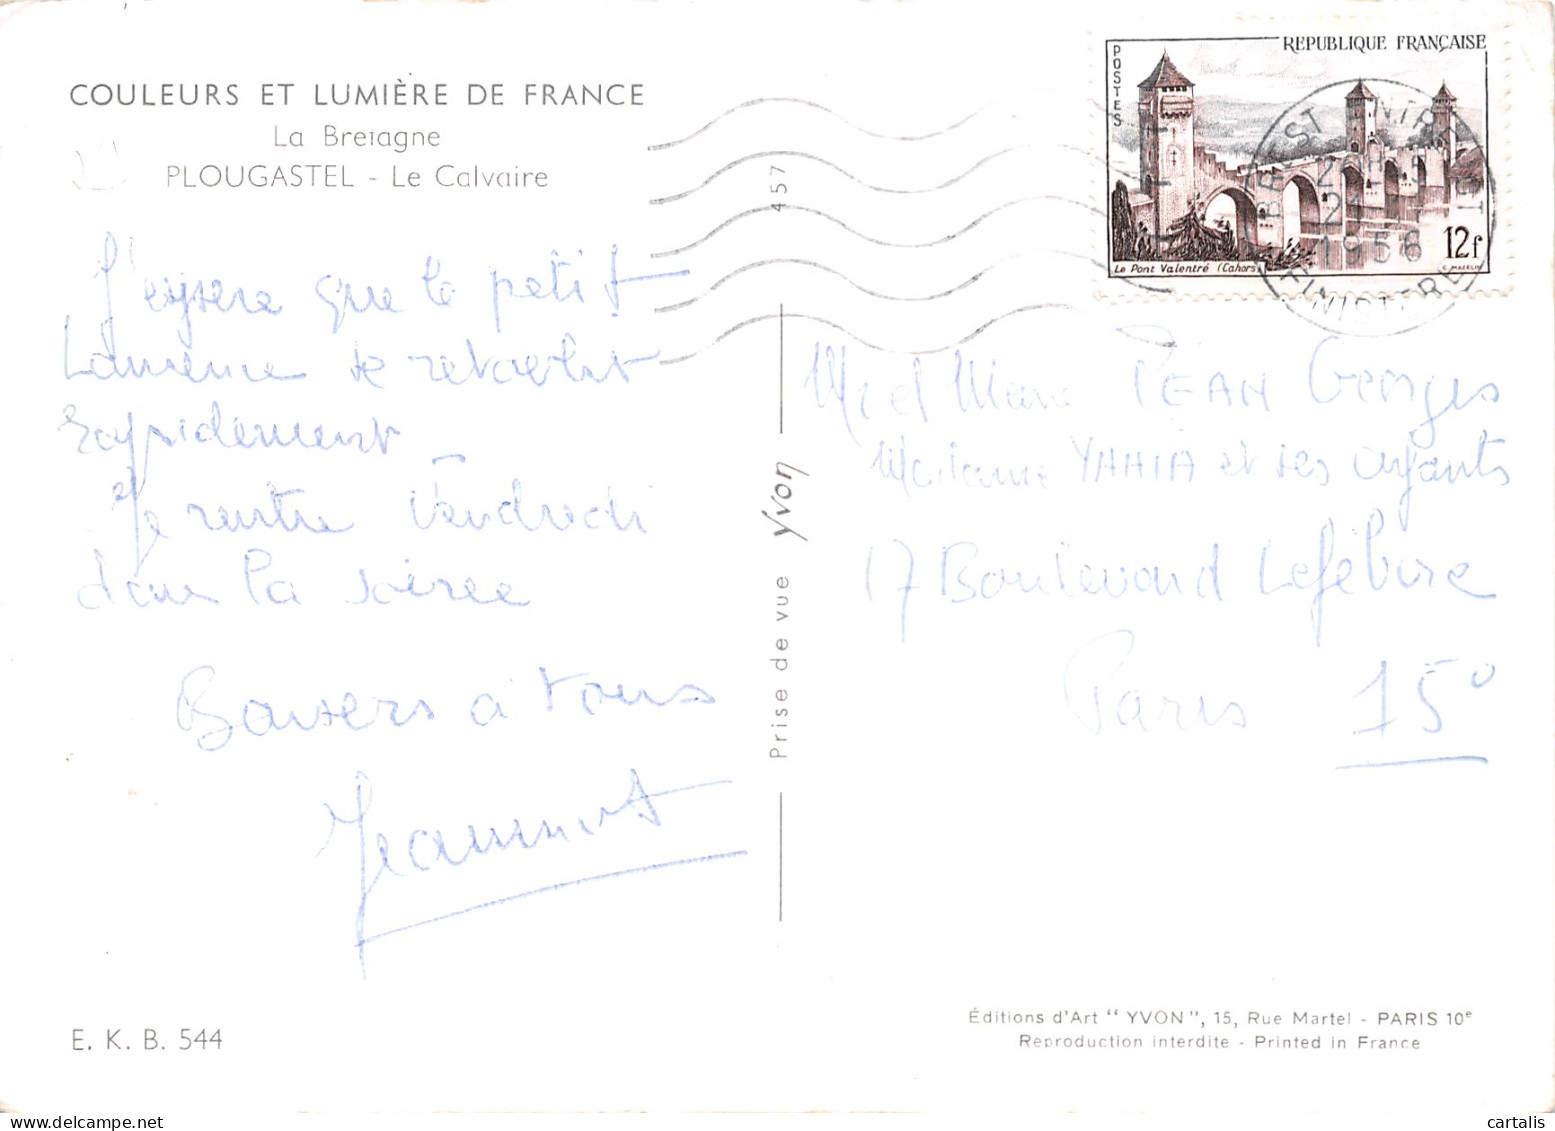 COULEURS ET LUMIÈRE DE FRANCE
La Bretagne
PLOUGASTEL - Le Calvaire
J'espère que le petit
Laurence se retablit
rapidement
Je rentre Vendredi
dans la soirée
Baisers à tous
Jeannot
E. K. B. 544
457
Prise de vue Yvon
POSTES
REPUBLIQUE FRANÇAISE
Le Pont Valentré (Cahors)
12f
C. MAZELIN
BREST ENTREPOT
FINISTERE
21
1956
Mr et Mme PEAN Georges
Madame YAHIA et ses enfants
17 Boulevard Lefébvre
Paris 15°
Éditions d'Art "YVON", 15, Rue Martel - PARIS 10e
Reproduction interdite - Printed in France
cartalis